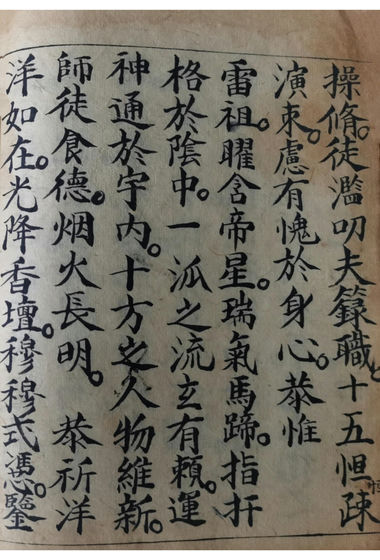 操脩。徒濫叨夫籙職。十五怛疎
演束。慮有愧於身心。恭惟
雷祖。曜含帝星。瑞氣馬蹄。指扞
格於陰中。一泒之流玄有賴。運
神通於宇内。十方之人物維新。
師徒食德。烟火長明。恭祈洋
洋如在。光降香壇。穆穆式憑。鑒